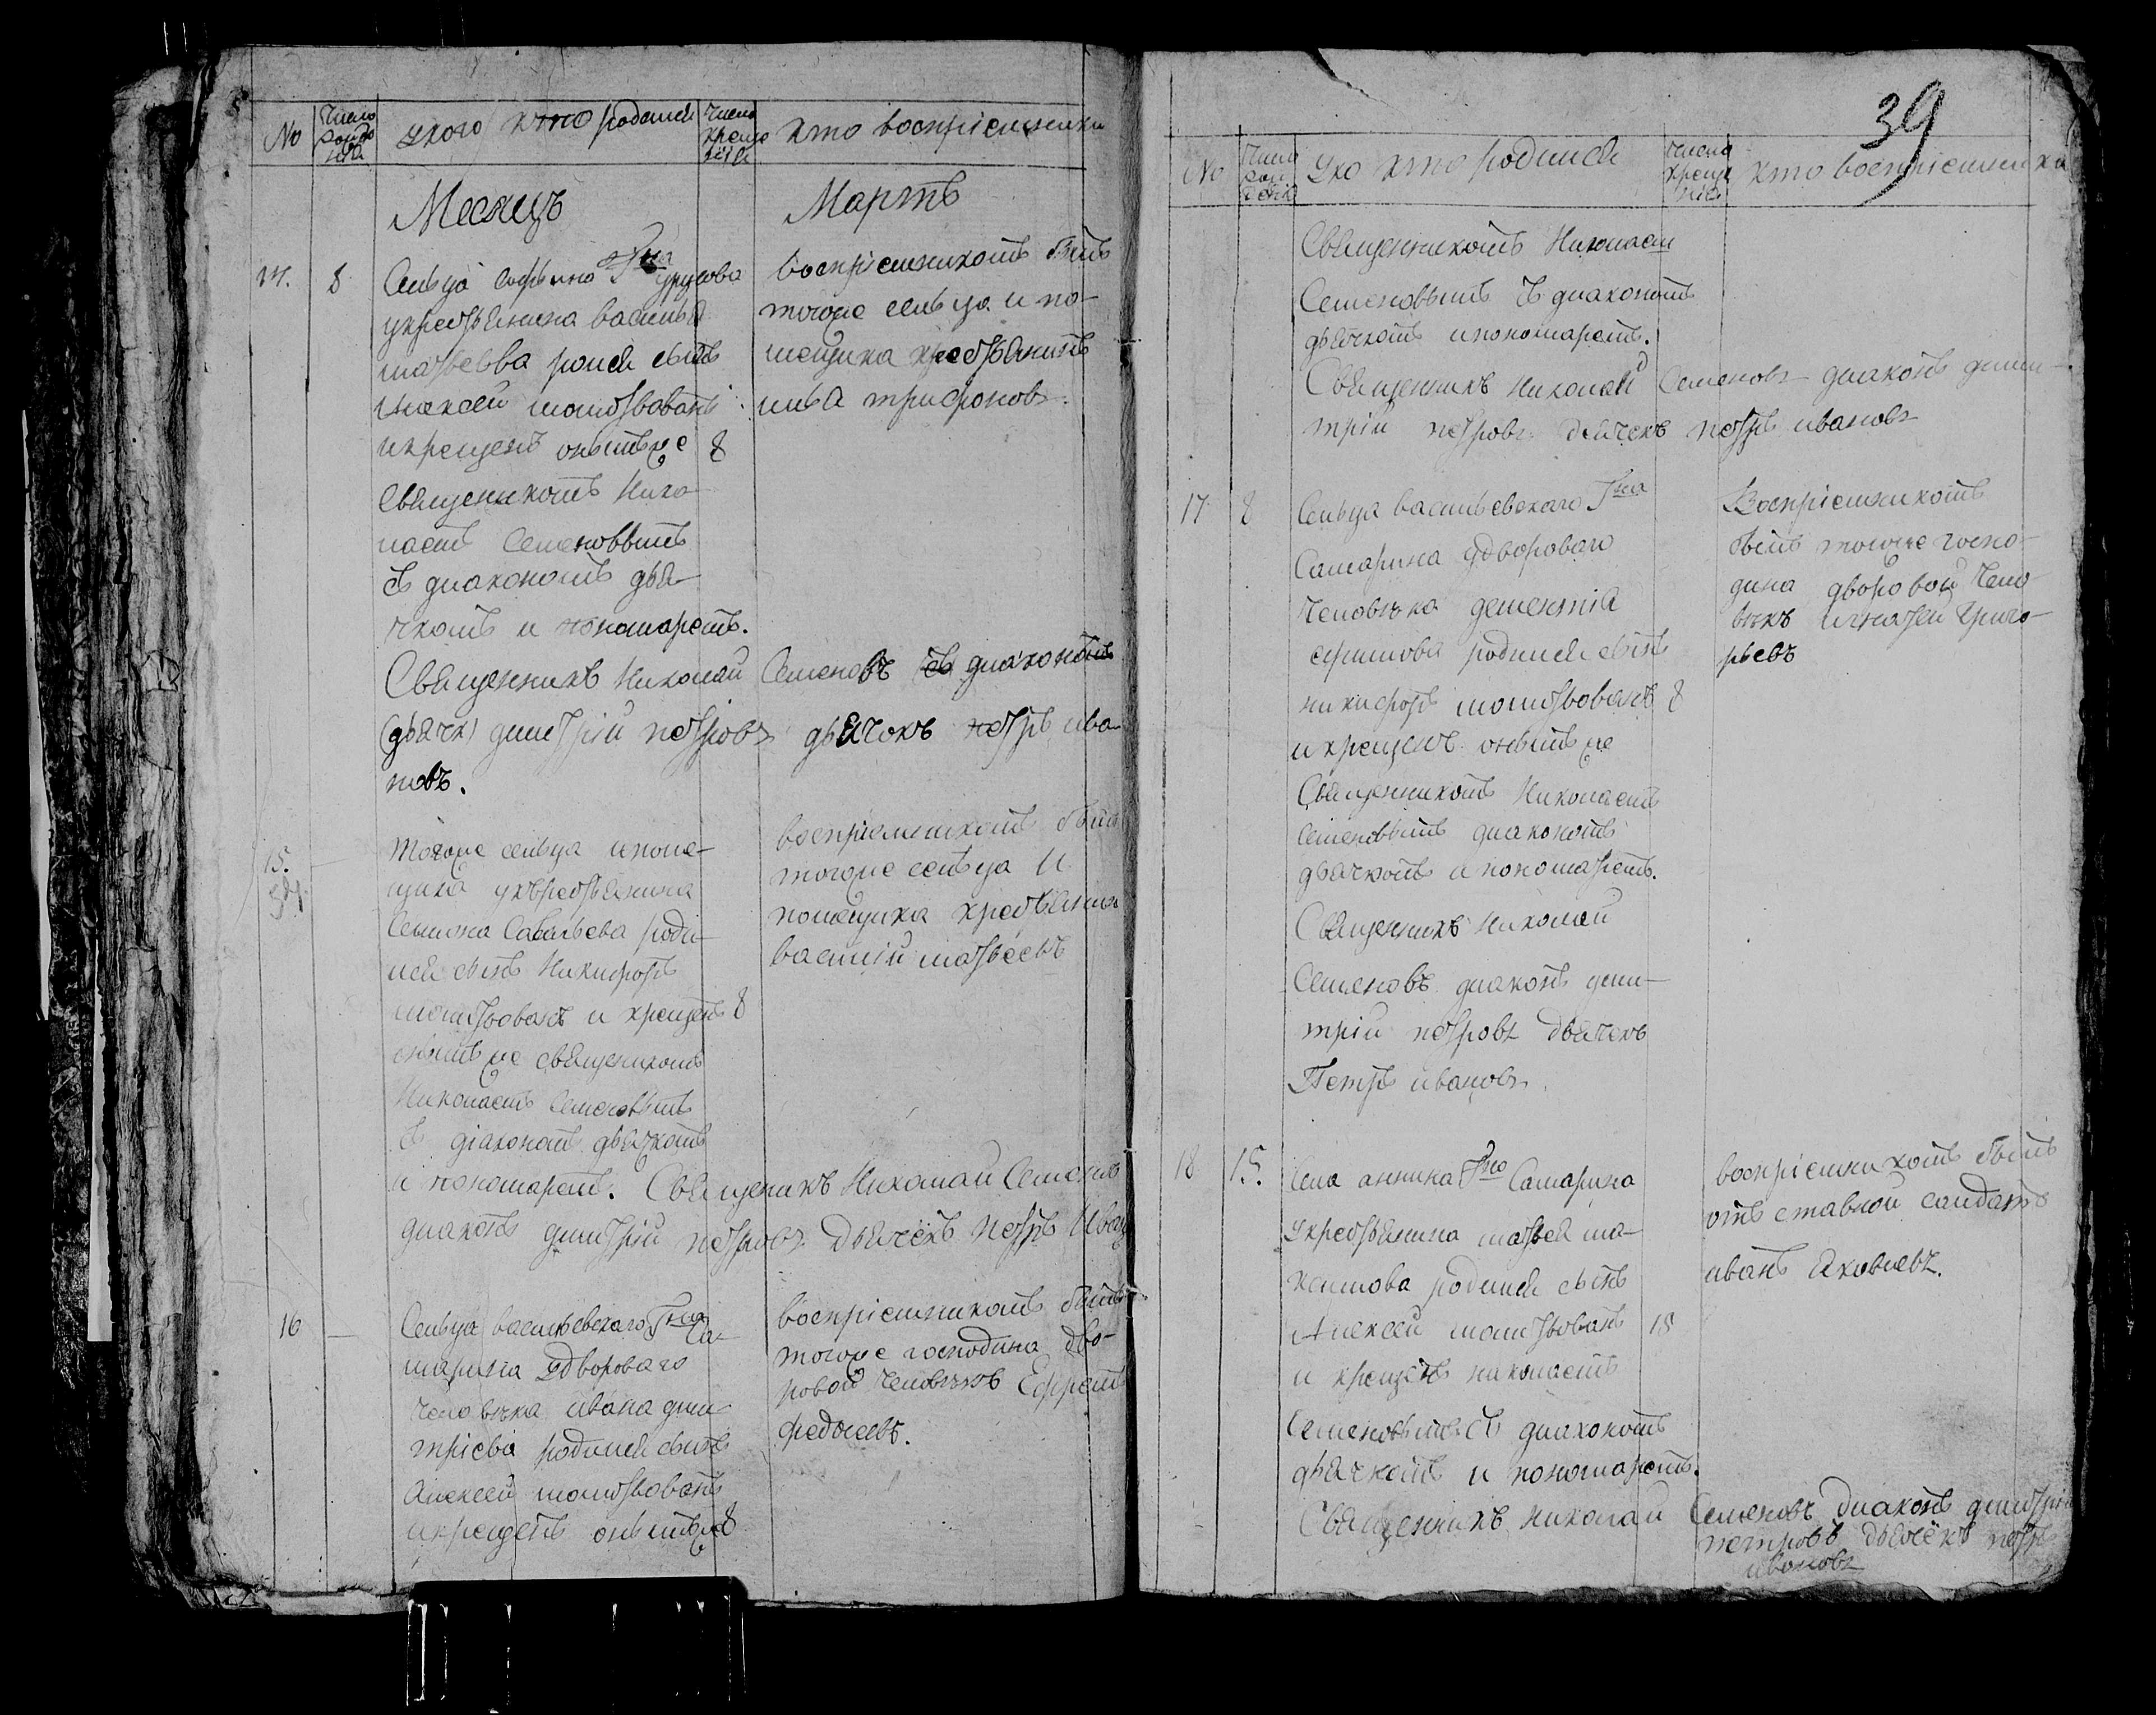 №
Число рождения
У кого кто родился
Число крещения
Кто восприемники
Месяцъ Мартъ
14.
8
Сельца Софьина Гна Урусова
у крестьянина Василья
Матвеева родися сынъ
Алексей молитвованъ
и крещенъ онымъ же
8
Священикомъ Нико-
лаемъ Семеновымъ
съ диакономъ дья-
чкомъ и пономаремъ.
восприемникомъ былъ
тогоже сельца и по-
мещика крестьянинъ
Илья Трифоновъ.
Священникъ Николай Семеновъ съ диакономъ
(дьячк) Димитрий Петровъ дьячокъ Петръ Ива-
новъ.
15.
Тогоже сельца и поме-
щика у крестьянина
Савельева роди-
лся сынъ Никифоръ
молитвованъ и крещенъ
8
онымъ же священикомъ
Николаемъ Семеновымъ
съ діакономъ дьячкомъ
и пономаремъ. Священикъ Николай Семеновъ
диаконъ Димитрий Петровъ дьячекъ Петръ Иван
восприемникомъ былъ
тогоже сельца и
помещика крестьянин
Василий Матвеевъ
16
Сельца Васильевскаго Гна Са-
марина у двороваго
человѣка Ивана Дми-
тріева родился сынъ
Алексей молитвованъ
и крещенъ онымъ же
8
восприемникомъ былъ
тогоже господина дво-
ровой человѣкъ Ефремъ
Федосеевъ.
39
№
Число рождения
У ко кто родился
Числа крещения
Кто восприемники
Священникомъ Николаем
Семеновымъ съ диакономъ
дьячкомъ и пономаремъ.
Священникъ Николай Семеновъ диаконъ Дими-
трий Петровъ дьячекъ Петръ Ивановъ
17
8
Сельца Васильевскаго Гна
Самарина у двороваго
человѣка Дементія
родился сынъ
Никифоръ молитвованъ
8
и крещенъ онымъ же
Священникомъ Николаемъ
Семеновымъ диакономъ
дьячкомъ и пономаремъ.
Священникъ Николай
Семеновъ диаконъ Дими-
трий Петровъ дьячекъ
Петръ Ивановъ.
Восприемникомъ
былъ тогоже госпо-
дина дворовой чело-
вѣкъ Игнатей Григо-
рьевъ
18
15.
Села Аннина Гна Самарина
у крестьянина Матвея Ма-
ксимова родился сынъ
Алексей молитвованъ
15
и крещенъ Николаемъ
Семеновымъ съ диакономъ
дьячкомъ и пономаремъ.
Священникъ Николай Семеновъ диаконъ Димитрий
Петровъ дьячекъ Петръ
Ивановъ
восприемникомъ былъ
отставной салдатъ
Иванъ Яковлевъ.